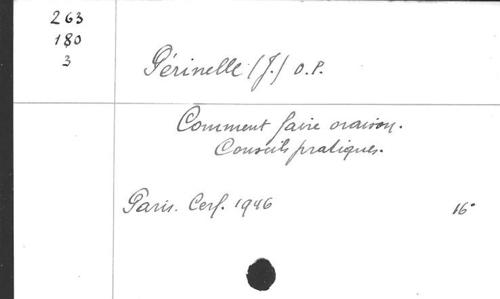 263
180
3
Périnelle (J.) O.P.
Comment faire oraison.
Conseils pratiques.
Paris. Cerf. 1946 16°